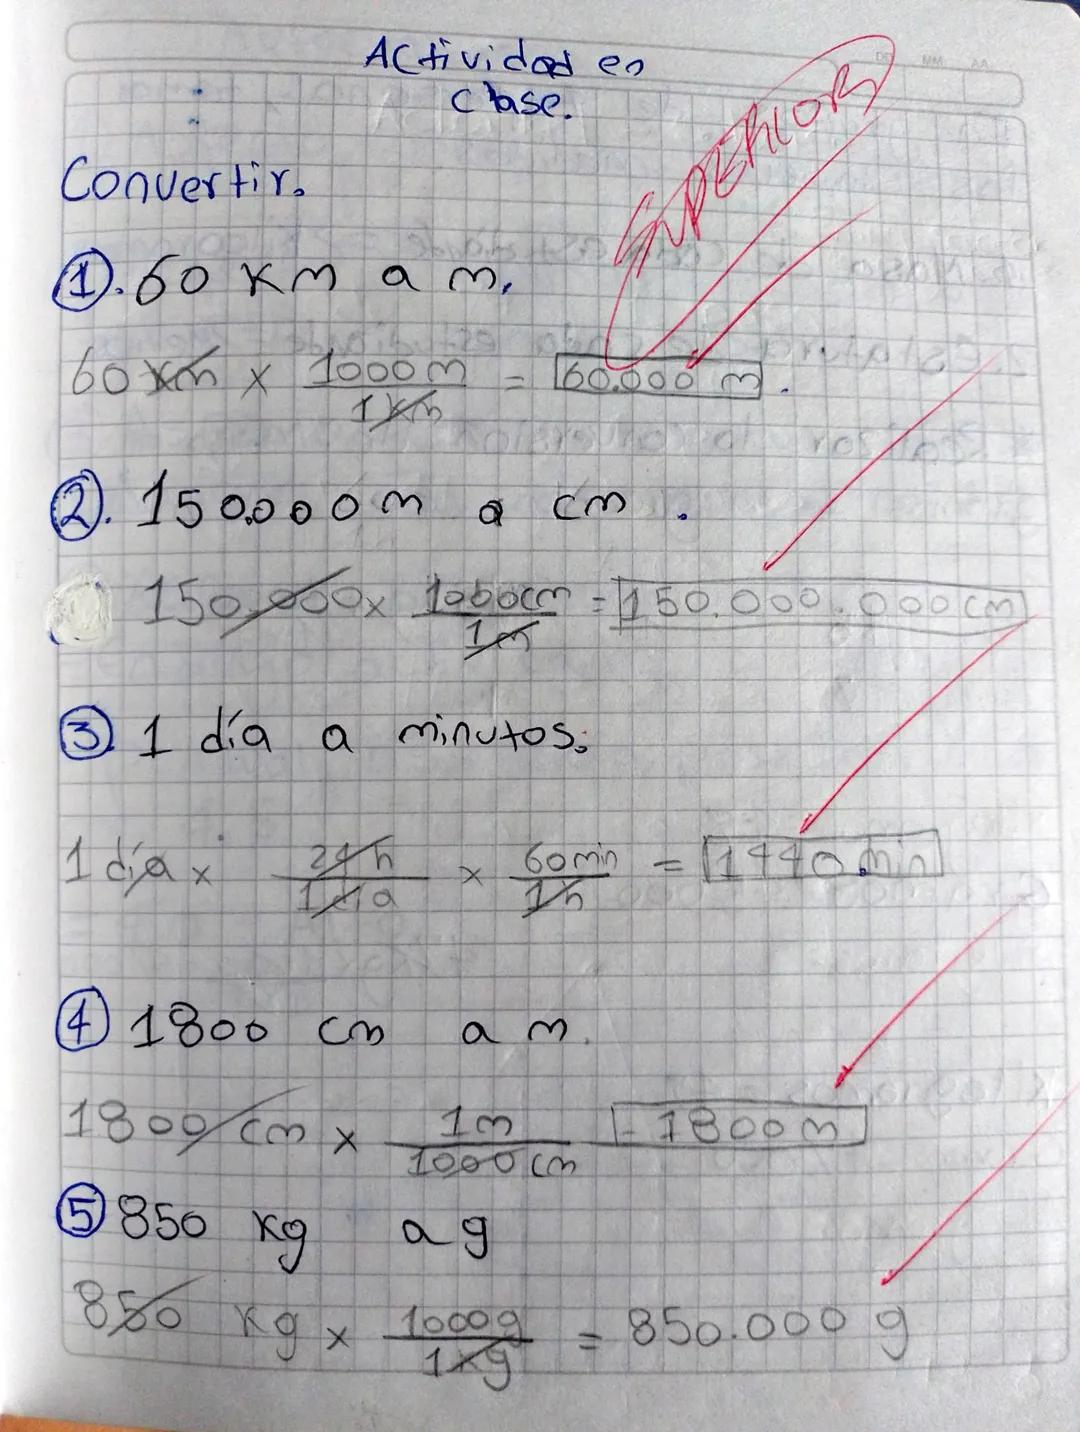 Actividad en
clase.
SUPERIOR
Convertir.
①. 60 Km a m.
60 km x 1000 m / 1 km = 60.000 m.
②. 150.000 m a cm.
150.000 x 1000 cm / 1 m = 150.000.000 cm
③ 1 día a minutos.
1 día x 24 h / 1 día x 60 min / 1 h = 1440 min
④ 1800 cm a m.
1800 cm x 1 m / 1000 cm = 1800 m
⑤ 850 kg a g
850 kg x 1000 g / 1 kg = 850.000 g